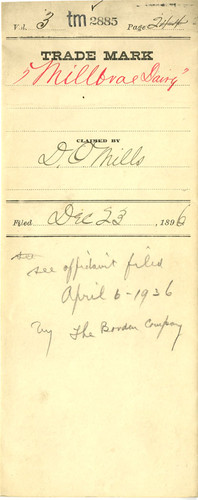 Vol. 3 tm 2885 Page
TRADE MARK
"Millbrae Dairy"
CLAIMED BY
D. O Mills
Filed Dec 23, 1896
see affidavit filed
April 6-1936
by The Borden Company